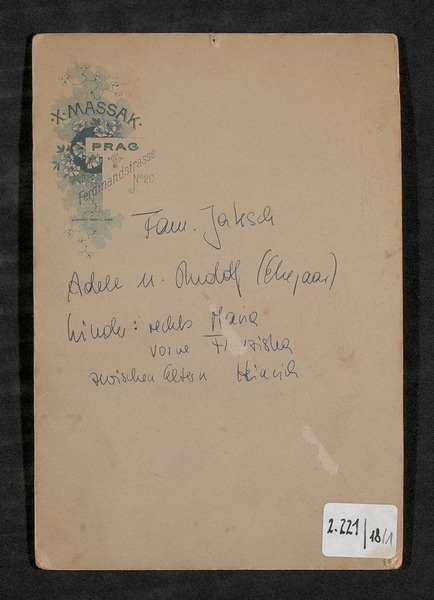 X. MASSAK
PRAG
Ferdinandstrasse
No 20.
Fam. Jaksch
Adele u. Rudolf (Ehepaar)
Kinder: rechts Maria
vorne Franziska
zwischen Eltern Heinrich
2.221/18/1